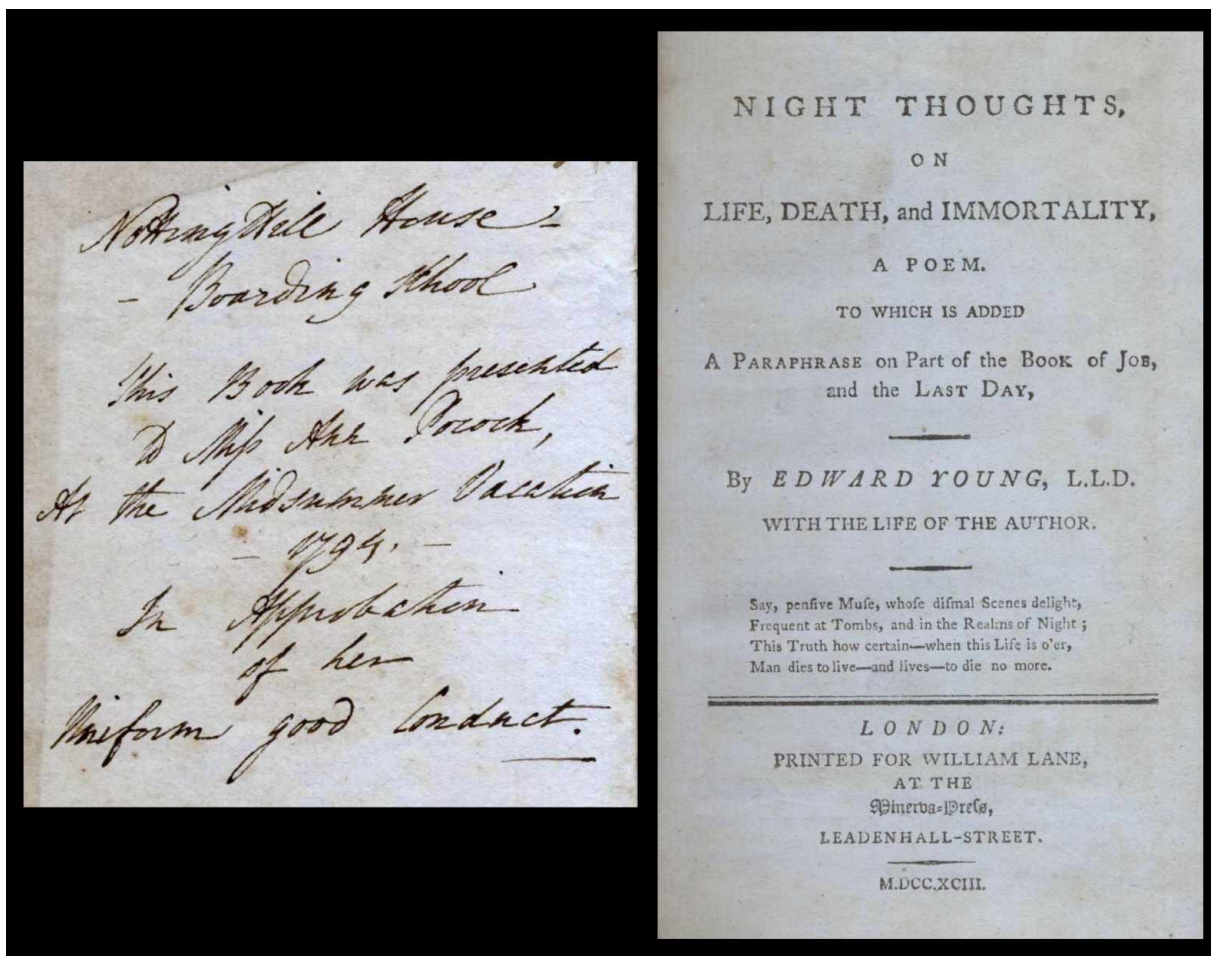 Notting Hill House -
- Boarding School
This Book was presented
To Miſs Ann Pocock,
At the Midsummer Vacation
- 1794. -
In Approbation
of her
Uniform good Conduct.
NIGHT THOUGHTS,
ON
LIFE, DEATH, and IMMORTALITY,
A POEM.
TO WHICH IS ADDED
A PARAPHRASE on Part of the BOOK of JOB,
and the LAST DAY,
By EDWARD YOUNG, L.L.D.
WITH THE LIFE OF THE AUTHOR.
Say, penſive Muſe, whoſe diſmal Scenes delight,
Frequent at Tombs, and in the Realms of Night ;
This Truth how certain—when this Life is o'er,
Man dies to live—and lives—to die no more.
LONDON:
PRINTED FOR WILLIAM LANE,
AT THE
Minerva-Preſs,
LEADENHALL-STREET.
M.DCC.XCIII.